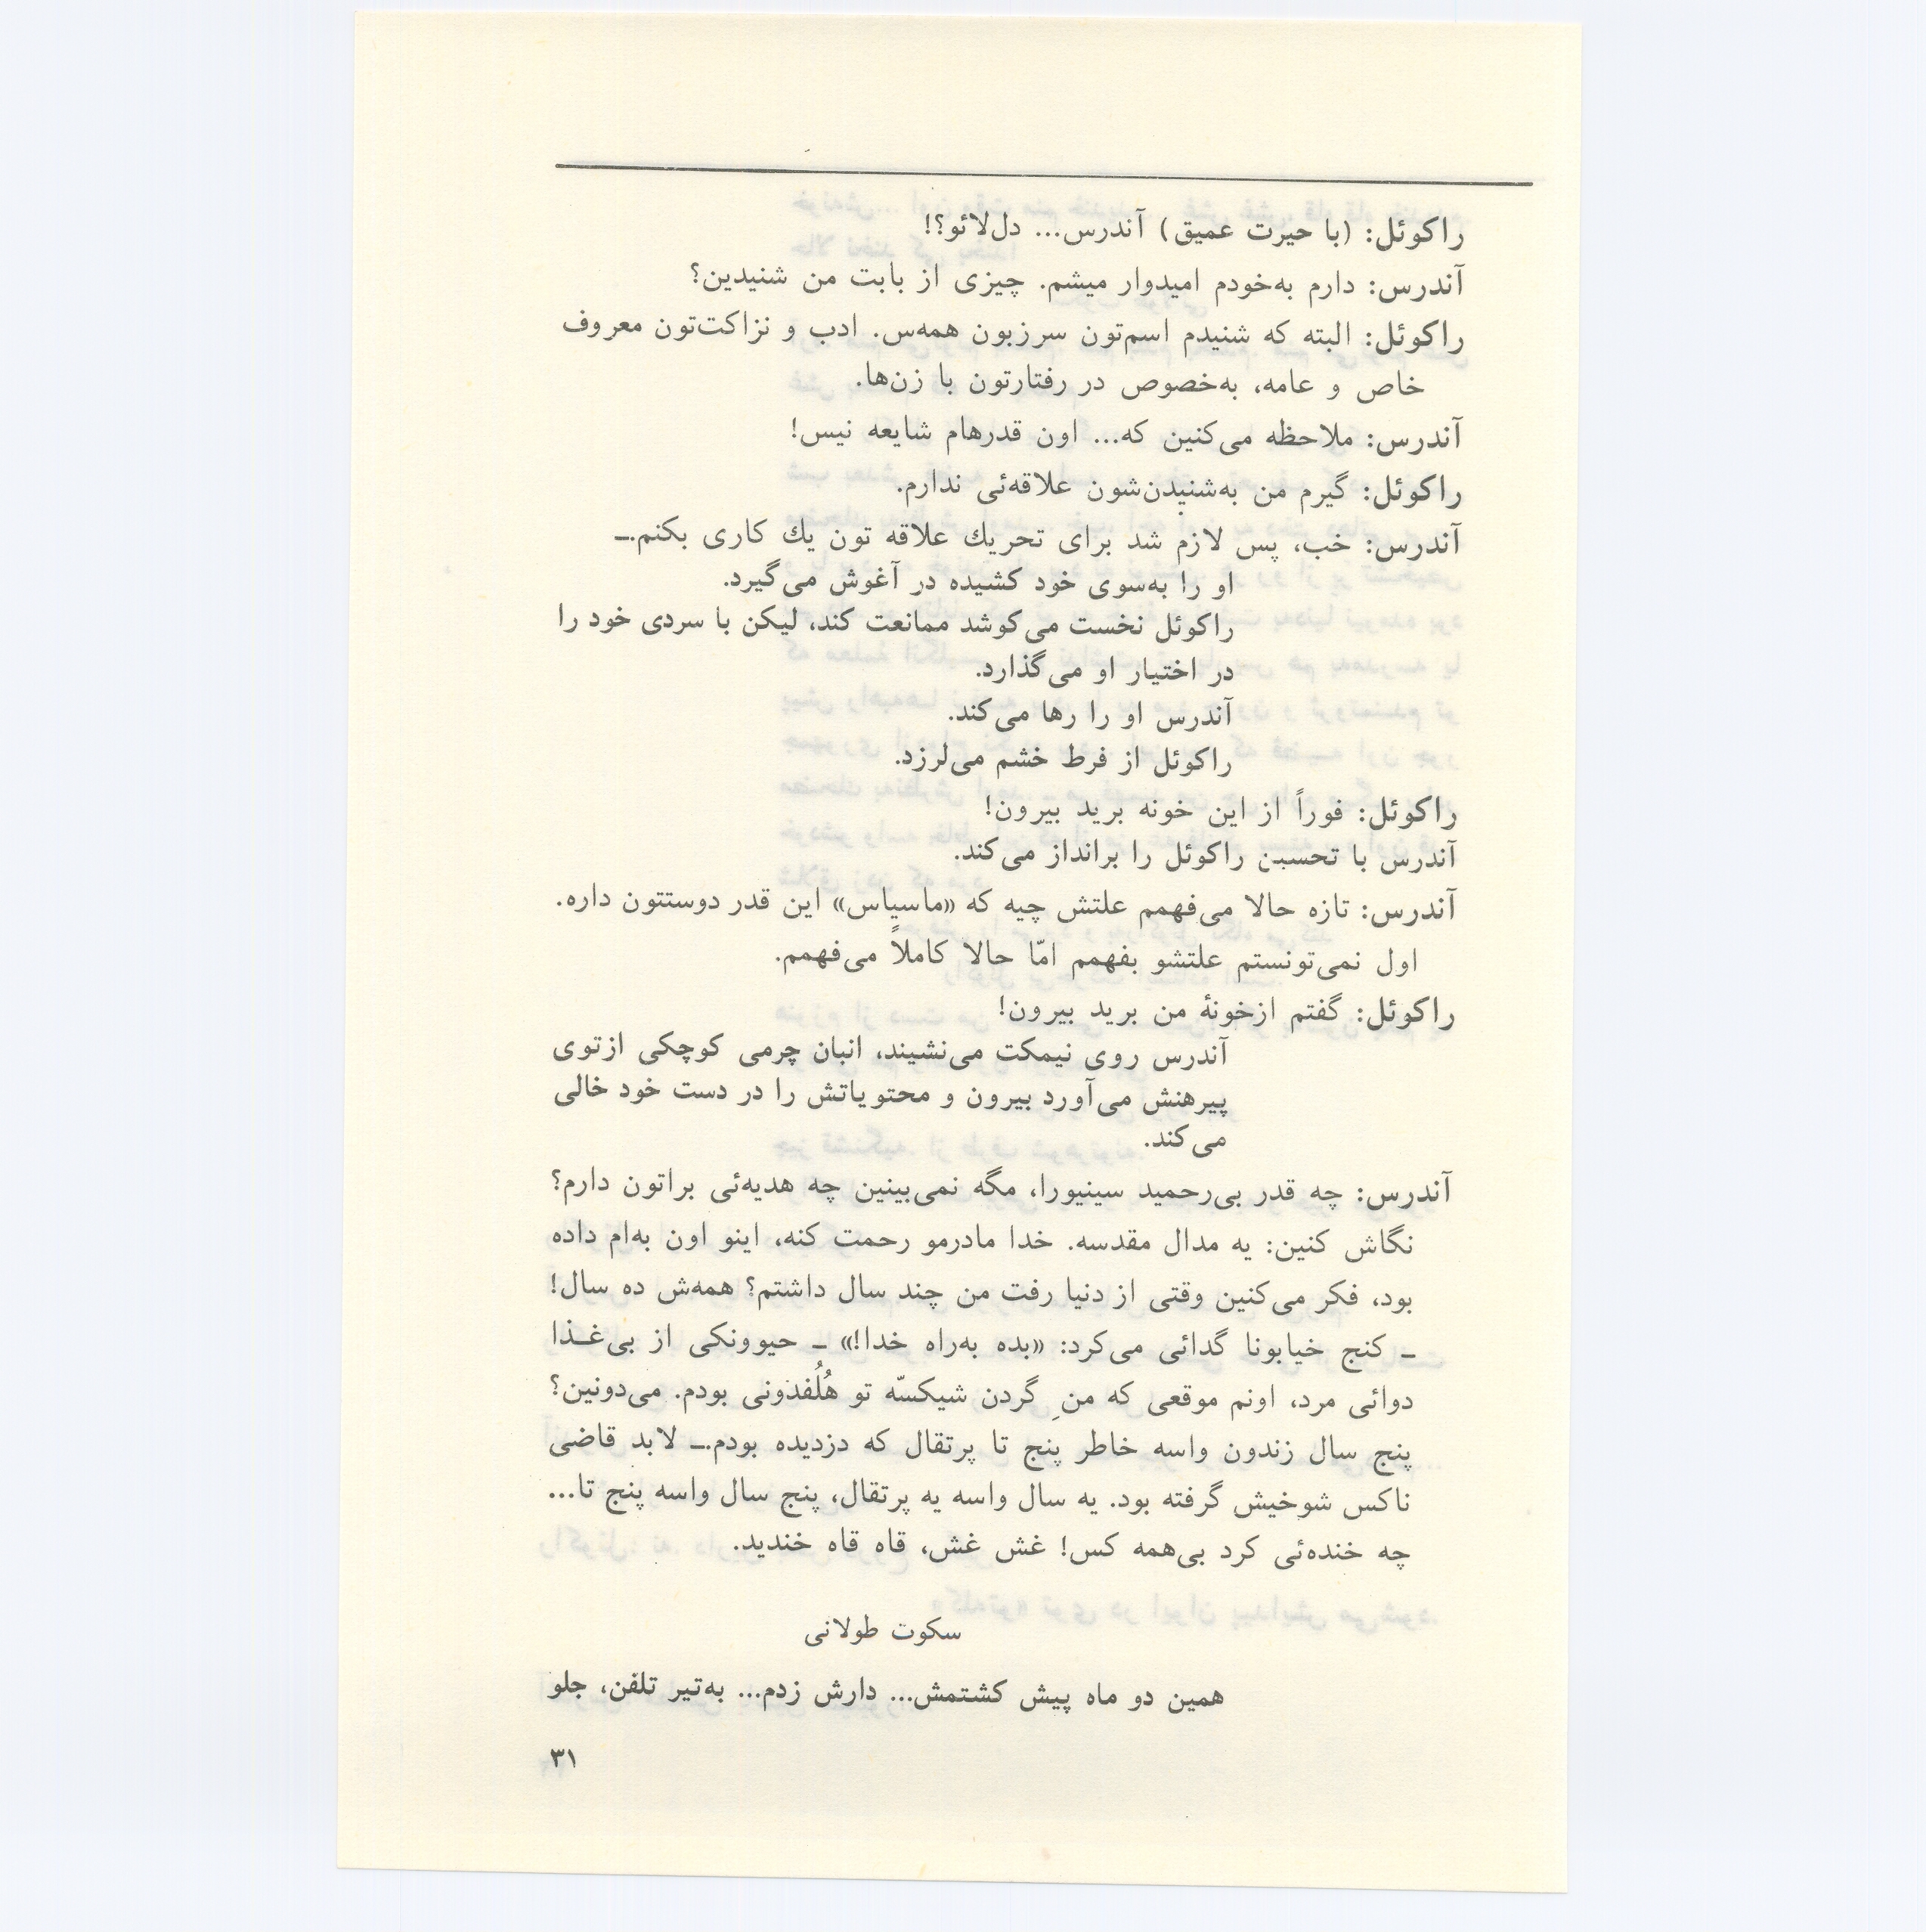 راکوئل: (با حیرت عمیق) آندرس... دل‌لائو؟!
آندرس: دارم به‌خودم امیدوار میشم. چیزی از بابت من شنیدین؟
راکوئل: البته که شنیدم اسم‌تون سرزبون همه‌س. ادب و نزاکت‌تون معروف
خاص و عامه، به‌خصوص در رفتارتون با زن‌ها.
آندرس: ملاحظه می‌کنین که... اون قدرهام شایعه نیس!
راکوئل: گیرم من به‌شنیدن‌شون علاقه‌ئی ندارم.
آندرس: خب، پس لازم شد برای تحریك علاقه تون یك کاری بکنم.ـ
او را به‌سوی خود کشیده در آغوش می‌گیرد.
راکوئل نخست می‌کوشد ممانعت کند، لیکن با سردی خود را
در اختیار او می‌گذارد.
آندرس او را رها می‌کند.
راکوئل از فرط خشم می‌لرزد.
راکوئل: فوراً از این خونه برید بیرون!
آندرس با تحسین راکوئل را برانداز می‌کند.
آندرس: تازه حالا می‌فهمم علتش چیه که «ماسیاس» این قدر دوستتون داره.
اول نمی‌تونستم علتشو بفهمم امّا حالا کاملاً می‌فهمم.
راکوئل: گفتم ازخونهٔ من برید بیرون!
آندرس روی نیمکت می‌نشیند، انبان چرمی کوچکی ازتوی
پیرهنش می‌آورد بیرون و محتویاتش را در دست خود خالی
می‌کند.
آندرس: چه قدر بی‌رحمید سینیورا، مگه نمی‌بینین چه هدیه‌ئی براتون دارم؟
نگاش کنین: یه مدال مقدسه. خدا مادرمو رحمت کنه، اینو اون به‌ام داده
بود، فکر می‌کنین وقتی از دنیا رفت من چند سال داشتم؟ همه‌ش ده سال!
ـ کنج خیابونا گدائی می‌کرد: «بده به‌راه خدا!» ـ حیوونکی از بی‌غـذا
دوائی مرد، اونم موقعی که منِ گردن شیکسّه تو هُلُفدونی بودم. می‌دونین؟
پنج سال زندون واسه خاطر پنج تا پرتقال که دزدیده بودم.ـ لابد قاضی
ناکس شوخیش گرفته بود. یه سال واسه یه پرتقال، پنج سال واسه پنج تا...
چه خنده‌ئی کرد بی‌همه کس! غش غش، قاه قاه خندید.
سکوت طولانی
همین دو ماه پیش کشتمش... دارش زدم... به‌تیر تلفن، جلو
۳۱